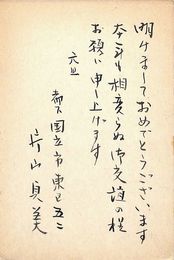 明けましておめでとうございます
本年も相変らぬ御交誼の程
お願い申し上げます
元旦
都下国立市東巳五二
片山貞美